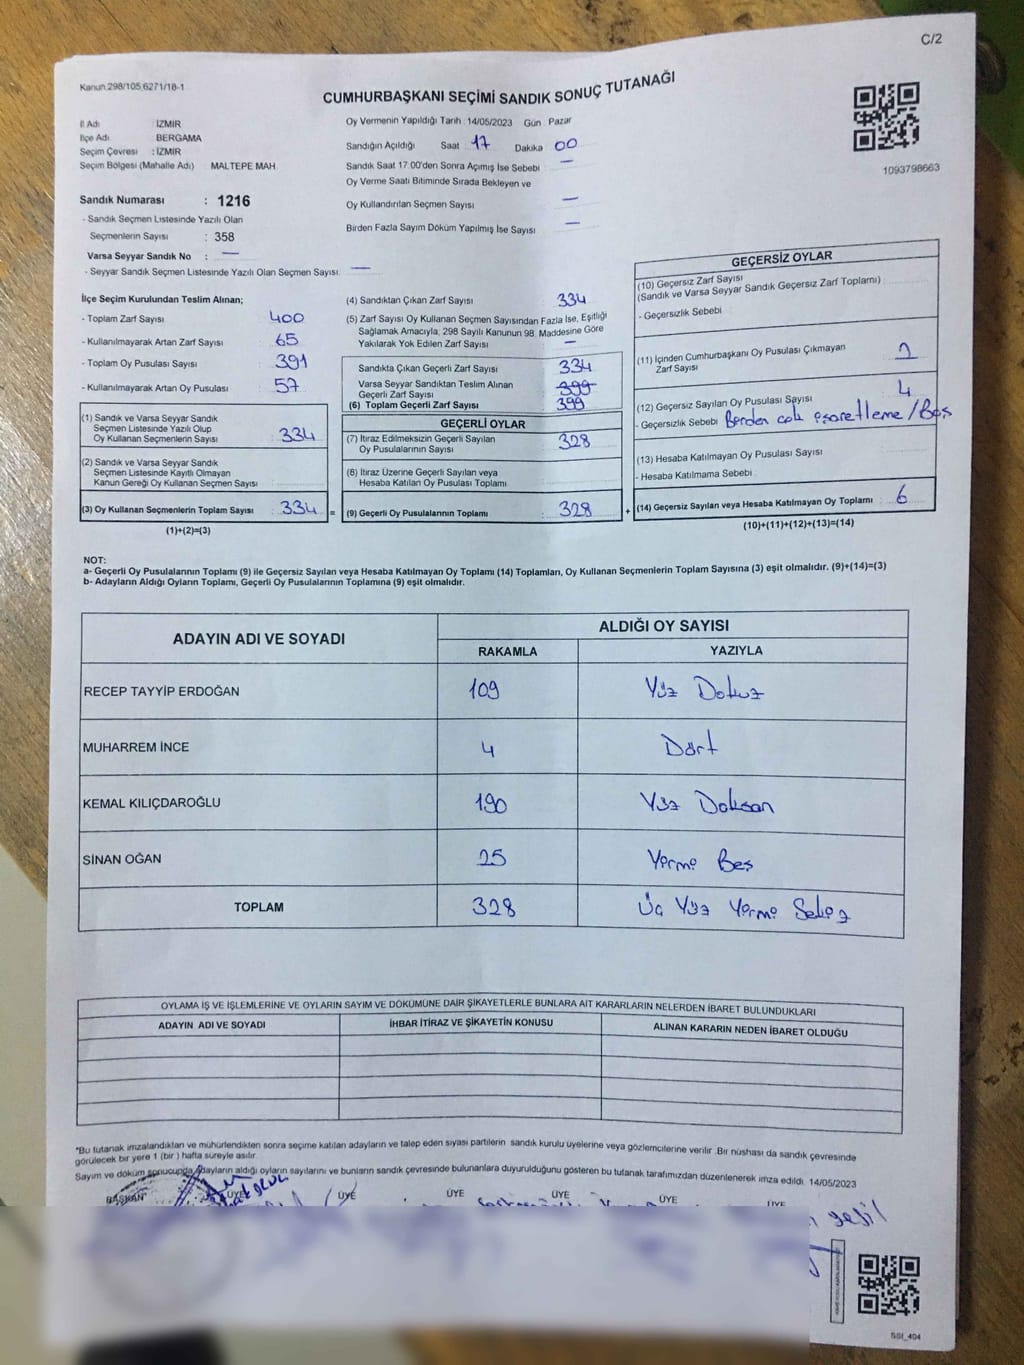 C/2
Kanun.298/105,6271/18-1
CUMHURBAŞKANI SEÇİMİ SANDIK SONUÇ TUTANAĞI
İl Adı : İZMİR
İlçe Adı : BERGAMA
Seçim Çevresi : İZMİR
Seçim Bölgesi (Mahalle Adı) MALTEPE MAH.
Sandık Numarası : 1216
- Sandık Seçmen Listesinde Yazılı Olan
Seçmenlerin Sayısı : 358
Varsa Seyyar Sandık No : —
- Seyyar Sandık Seçmen Listesinde Yazılı Olan Seçmen Sayısı: —
Oy Vermenin Yapıldığı Tarih : 14/05/2023 Gün : Pazar
Sandığın Açıldığı Saat 17 Dakika 00
Sandık Saat 17:00'den Sonra Açımış İse Sebebi : —
Oy Verme Saati Bitiminde Sırada Bekleyen ve
Oy Kullandırılan Seçmen Sayısı —
Birden Fazla Sayım Döküm Yapılmış İse Sayısı —
1093798663
İlçe Seçim Kurulundan Teslim Alınan;
- Toplam Zarf Sayısı : 400
- Kullanılmayarak Artan Zarf Sayısı : 65
- Toplam Oy Pusulası Sayısı : 391
- Kullanılmayarak Artan Oy Pusulası : 57
(1) Sandık ve Varsa Seyyar Sandık
Seçmen Listesinde Yazılı Olup
Oy Kullanan Seçmenlerin Sayısı : 334
(2) Sandık ve Varsa Seyyar Sandık
Seçmen Listesinde Kayıtlı Olmayan
Kanun Gereği Oy Kullanan Seçmen Sayısı :
(3) Oy Kullanan Seçmenlerin Toplam Sayısı : 334 =
(1)+(2)=(3)
(4) Sandıktan Çıkan Zarf Sayısı : 334
(5) Zarf Sayısı Oy Kullanan Seçmen Sayısından Fazla İse, Eşitliği
Sağlamak Amacıyla, 298 Sayılı Kanunun 98. Maddesine Göre
Yakılarak Yok Edilen Zarf Sayısı : —
Sandıkta Çıkan Geçerli Zarf Sayısı : 334
Varsa Seyyar Sandıktan Teslim Alınan
Geçerli Zarf Sayısı : 399
(6) Toplam Geçerli Zarf Sayısı : 399
GEÇERLİ OYLAR
(7) İtiraz Edilmeksizin Geçerli Sayılan
Oy Pusulalarının Sayısı : 328
(8) İtiraz Üzerine Geçerli Sayılan veya
Hesaba Katılan Oy Pusulası Toplamı :
(9) Geçerli Oy Pusulalarının Toplamı : 328 +
GEÇERSİZ OYLAR
(10) Geçersiz Zarf Sayısı
(Sandık ve Varsa Seyyar Sandık Geçersiz Zarf Toplamı) :
- Geçersizlik Sebebi :
(11) İçinden Cumhurbaşkanı Oy Pusulası Çıkmayan
Zarf Sayısı : 2
(12) Geçersiz Sayılan Oy Pusulası Sayısı : 4
- Geçersizlik Sebebi : Birden çok işaretleme/Boş
(13) Hesaba Katılmayan Oy Pusulası Sayısı :
- Hesaba Katılmama Sebebi :
(14) Geçersiz Sayılan veya Hesaba Katılmayan Oy Toplamı : 6
(10)+(11)+(12)+(13)=(14)
NOT:
a- Geçerli Oy Pusulalarının Toplamı (9) ile Geçersiz Sayılan veya Hesaba Katılmayan Oy Toplamı (14) Toplamları, Oy Kullanan Seçmenlerin Toplam Sayısına (3) eşit olmalıdır. (9)+(14)=(3)
b- Adayların Aldığı Oyların Toplamı, Geçerli Oy Pusulalarının Toplamına (9) eşit olmalıdır.
ADAYIN ADI VE SOYADI ALDIĞI OY SAYISI
RAKAMLA YAZIYLA
RECEP TAYYİP ERDOĞAN 109 Yüz Dokuz
MUHARREM İNCE 4 Dört
KEMAL KILIÇDAROĞLU 190 Yüz Doksan
SİNAN OĞAN 25 Yirmi Beş
TOPLAM 328 Üç Yüz Yirmi Sekiz
OYLAMA İŞ VE İŞLEMLERİNE VE OYLARIN SAYIM VE DÖKÜMÜNE DAİR ŞİKAYETLERLE BUNLARA AİT KARARLARIN NELERDEN İBARET BULUNDUKLARI
ADAYIN ADI VE SOYADI İHBAR İTİRAZ VE ŞİKAYETİN KONUSU ALINAN KARARIN NEDEN İBARET OLDUĞU
*Bu tutanak imzalandıktan ve mühürlendikten sonra seçime katılan adayların ve talep eden siyasi partilerin sandık kurulu üyelerine veya gözlemcilerine verilir. Bir nüshası da sandık çevresinde
görülecek bir yere 1 (bir) hafta süreyle asılır.
Sayım ve döküm sonucunda adayların aldığı oyların sayılarını ve bunların sandık çevresinde bulunanlara duyurulduğunu gösteren bu tutanak tarafımızdan düzenlenerek imza edildi. 14/05/2023
BAŞKAN ÜYE ÜYE ÜYE ÜYE ÜYE ÜYE
SSI_404